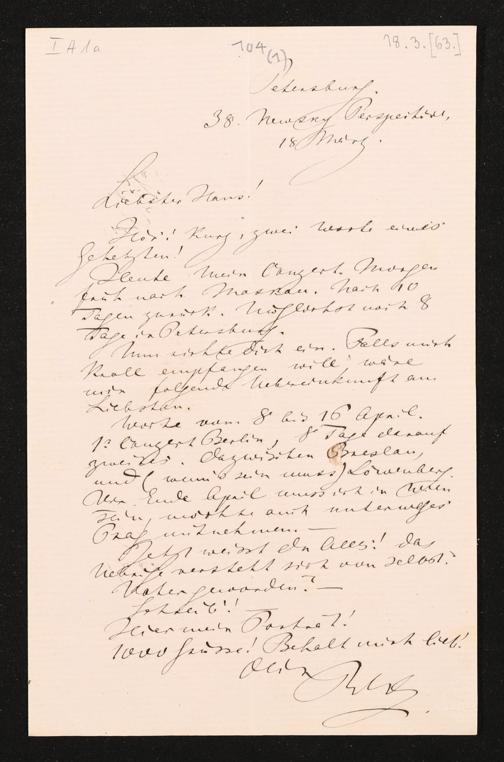 I A 1a 104 (1) 18. 3. [63.]
Petersburg.
38. Newsky Perspective,
18 März.
Liebster Hans!
Hör! Kurz, zwei Worte eines
Gehetzten!
Heute mein Conzert. Morgen
früh nach Moskau. Nach 10
Tagen zurück. Möglichst noch 8
Tage in Petersburg.
Nun richte Dich ein. Falls mich
Kroll empfangen will wäre
mir folgende Uebereinkunft am
Liebsten.
Woche vom 8 bis 16 April.
1s Conzert Berlin, 8 Tage darauf
zweites. Dazwischen Breslau,
und (wenn's sein muss) Löwenberg.
Vor Ende April muss ich in Wien
sein, möchte auch unterweges
Prag mitnehmen. —
Jetzt weisst du Alles! Das
Uebrige versteht sich von selbst.
Vater geworden? —
Schreib'! —
Hier mein Portrait!
1000 Grüsse! Behalt mich lieb!
Dein